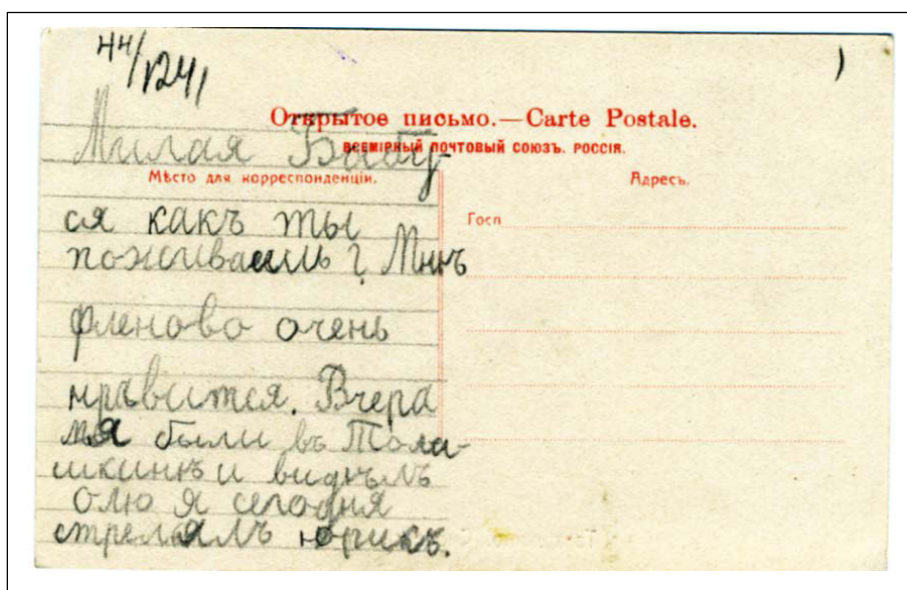 44/1241
)
Открытое письмо.—Carte Postale.
ВСЕМІРНЫЙ ПОЧТОВЫЙ СОЮЗЪ. РОССІЯ.
Мѣсто для корреспонденціи.
Адресъ.
Госп
Милая Бабу
ся какъ ты
поживаешь? Мнѣ
Фленово очень
нравится. Вчера
мы были въ Тала-
шкинѣ и видѣлъ
Олю я сегодня
стрелялъ Юрикъ.